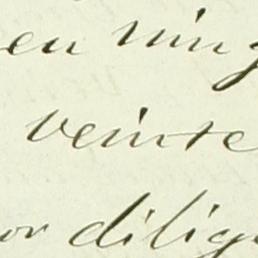 en ning
veinte
or dilig